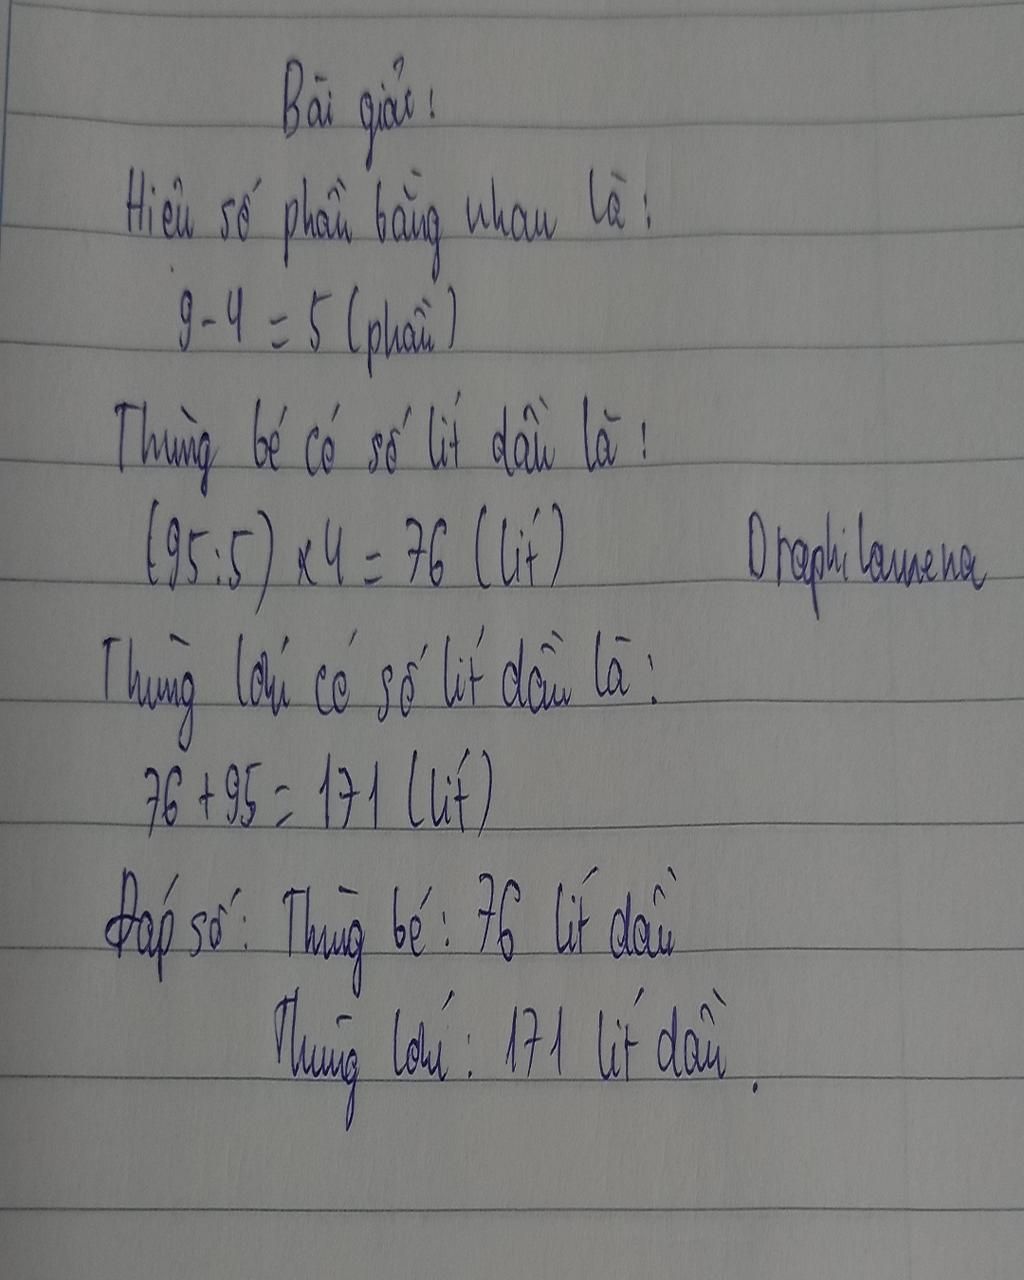 Bài giải:
Hiệu số phần bằng nhau là:
9-4 = 5 (phần)
Thùng bé có số lít dầu là:
(95:5) x4 = 76 (lít)
Draphilamena
Thùng lớn có số lít dầu là:
76+95= 171 (lít)
Đáp số: Thùng bé: 76 lít dầu
Thùng lớn: 171 lít dầu.